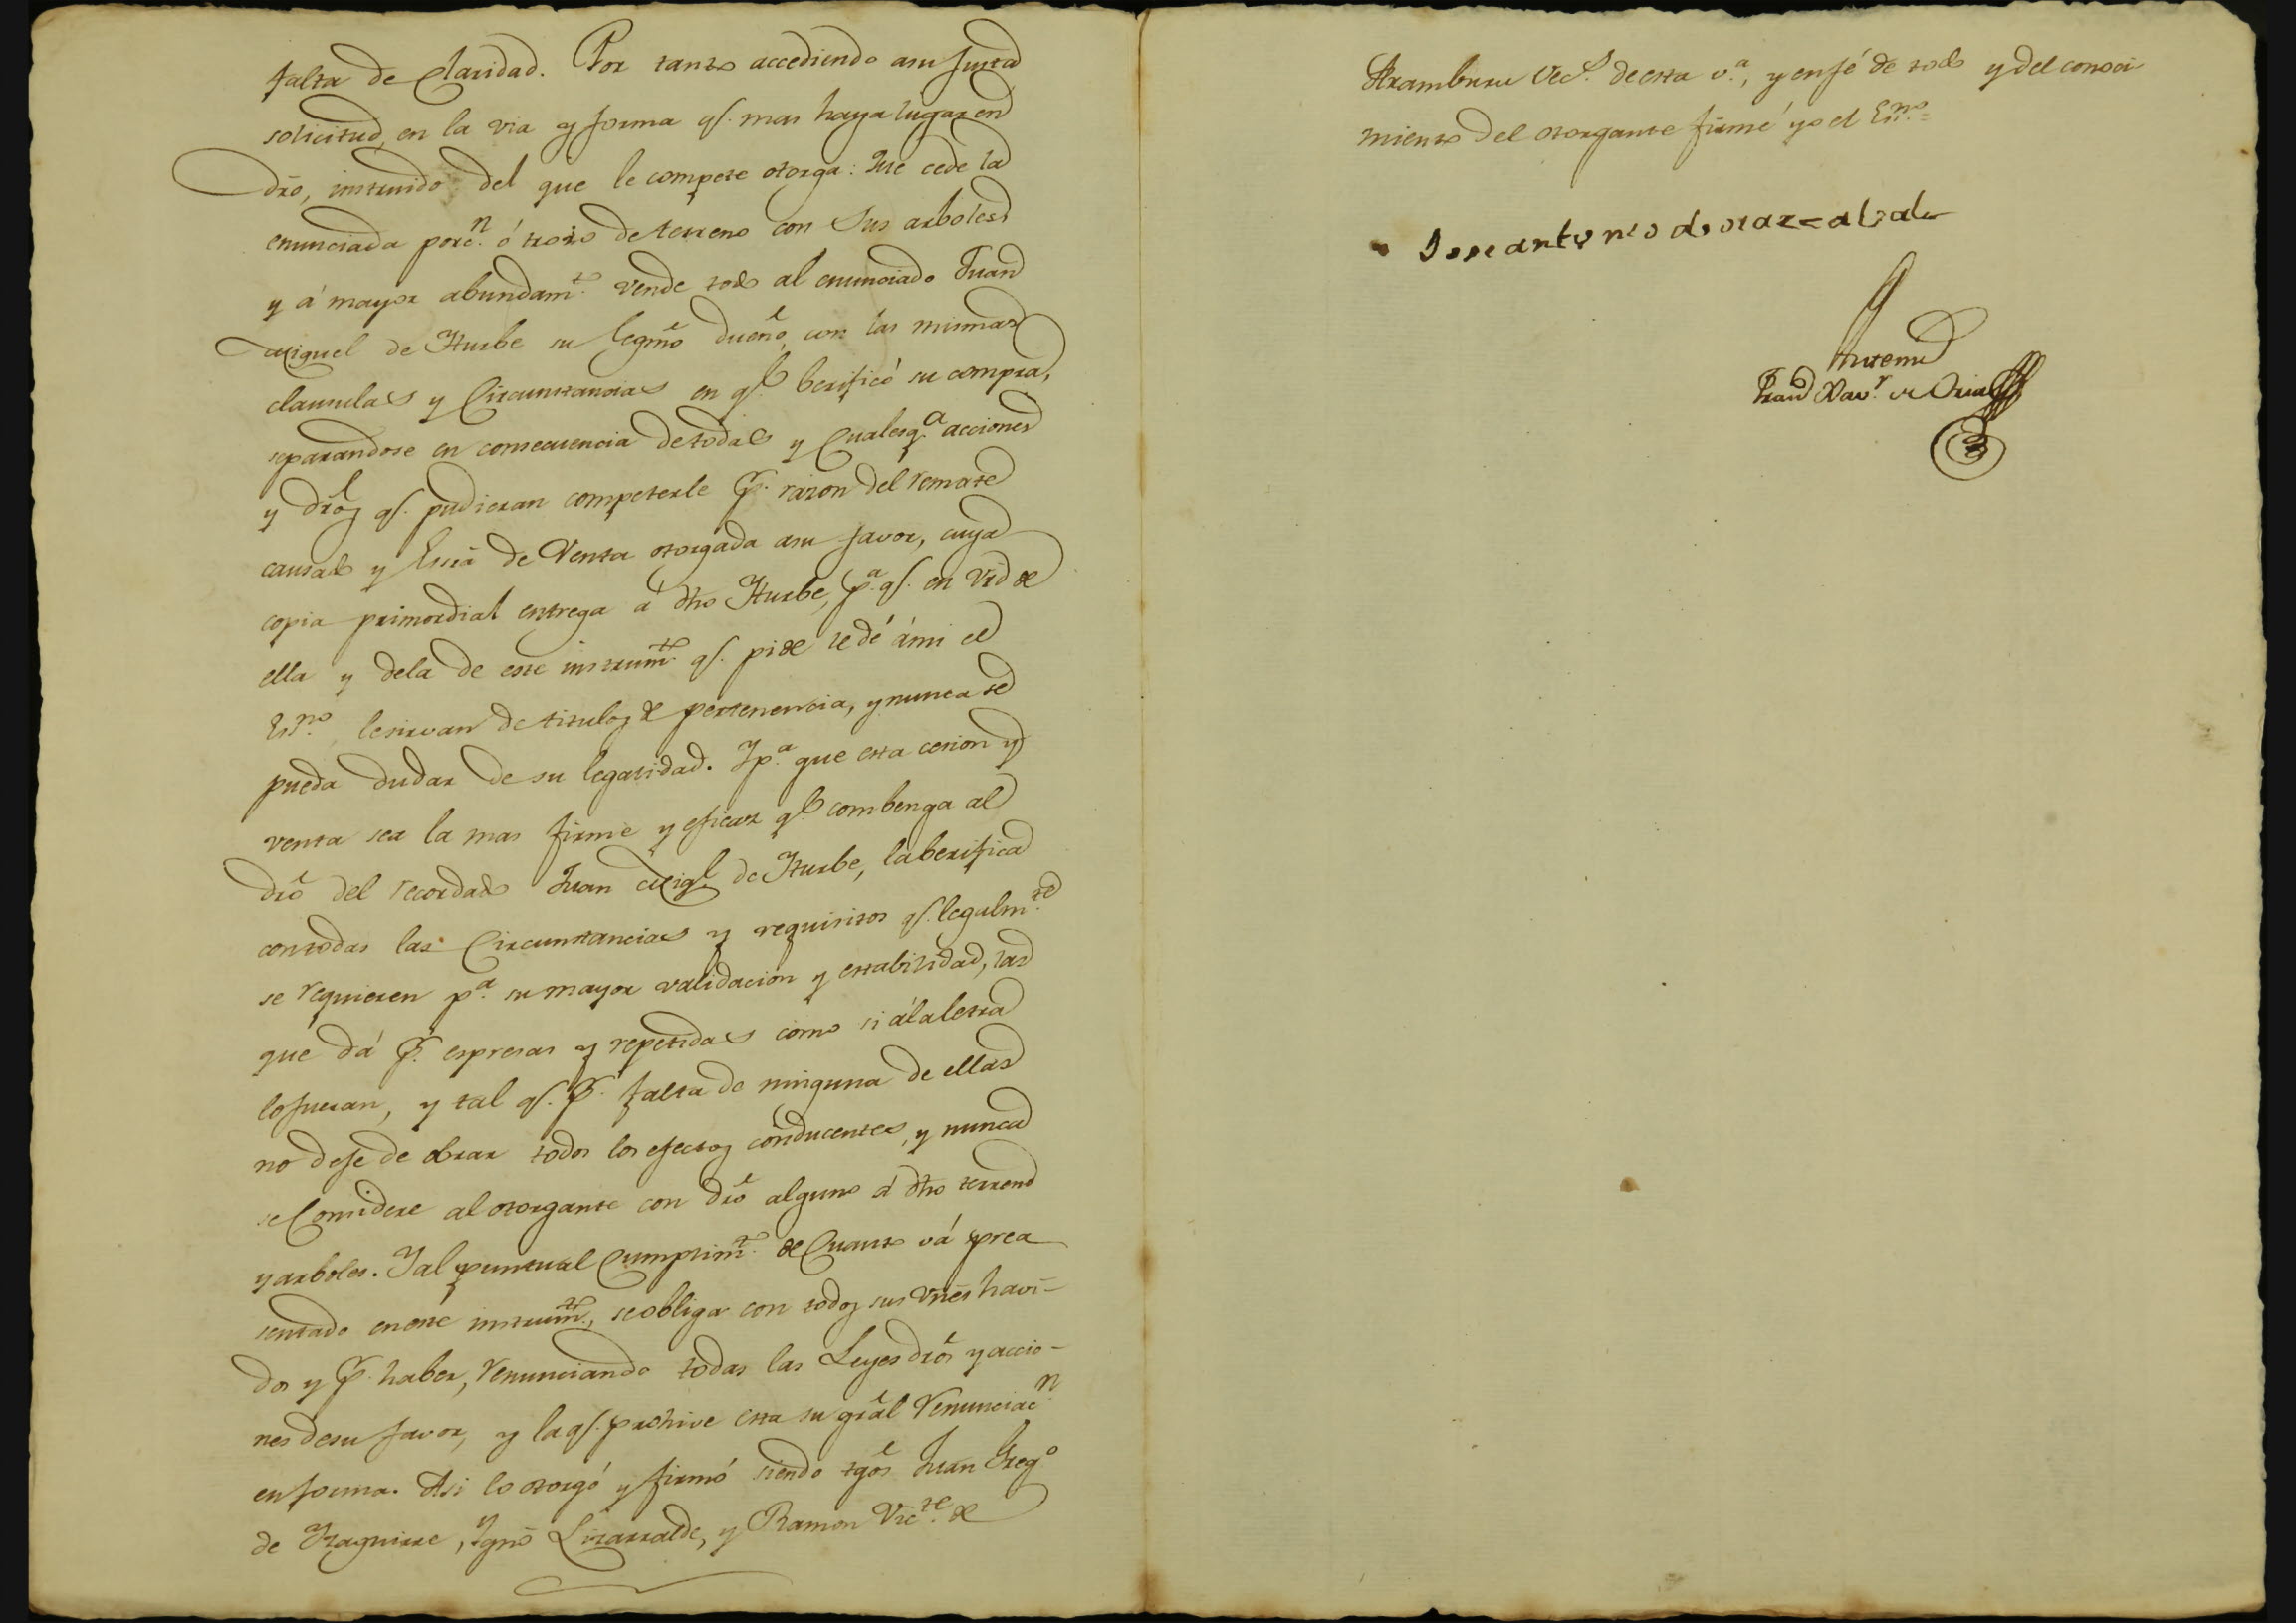 falta de claridad. Por tanto accediendo asu justa
solicitud, en la via y forma q.e mas haya lugar en
dro, instruido del que le compete otorga: Que cede la
enunciada porc.n ó trozo de terreno con sus arboles
y á mayor abundam.to vende todo al enunciado Juan
Miguel de Iturbe su legmo dueño, con las mismas
clausulas y Circunstancias en q.e berificó su compra,
separandose en consecuencia de todas y Qualesq.a acciones
y dros q.e pudieran competerle p.r razon del remate
causas y Escra de Venta otorgada asu favor, cuya
copia primordial entrega á dho Iturbe, p.a q.e en Vrd de
ella y dela de este instrum.to q.e pide se dé ámi el
Esno le sirvan de titulos de pertenencia, y nunca se
pueda dudar de su legalidad. Y p.a que esta cesion y
venta sea la mas firme y eficaz q.e combenga al
dro del recordado Juan Migl de Iturbe, la berifica
con todas las Circunstancias y requisitos q.e legalm.te
se requieren p.a su mayor validacion y estabilidad, las
que dá p.r espresas y repetidas como si álaletra
lo fueran, y tal q.e p.r falta de ninguna de ellas
no deje de obrar todos los efectos conducentes, y nunca
se Considere al otorgante con dro alguno á dho terreno
y arboles. Y al puntual Cumplim.to de Quanto vá prea
sentado eneste instrum.to, se obliga con todos sus Vnes havi-
dos y p.r haber, renunciando todas las Leyes dros y accio-
nes desu favor, y la q.e prohive esta su gral Renunciac.n
en forma. Asi lo otorgó y firmó siendo tgos Juan Greg.o
de Yzaguirre, Ygno Lizarralde, y Ramon Vic.te de
Aramburu Vec.s de esta v.a, y enfé de todo y del conoci-
miento del otorgante firmé yo el Es.no =
Jose antonio de
Antemi
Fran.co Xav.r de